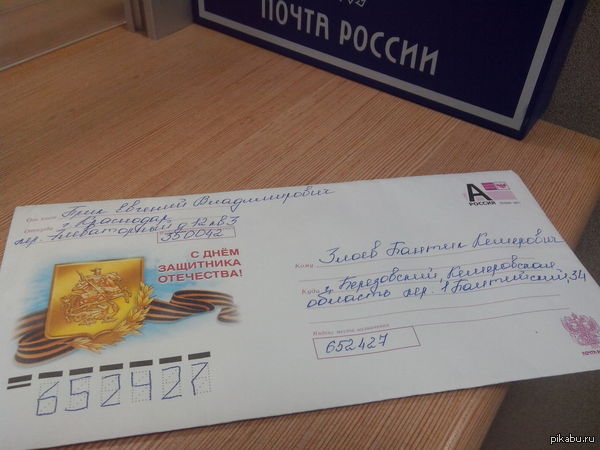 ПОЧТА РОССИИ
От кого Грик Евгений Владимирович
Откуда г. Краснодар
пер. Элеваторный д. 12 кв 3
350042
С ДНЁМ
ЗАЩИТНИКА
ОТЕЧЕСТВА!
А
РОССИЯ
Кому Злоев Бантик Кемерович
Куда г. Березовский, Кемеровская
область пер. 1 Балтийский, 34
Индекс места назначения
652427
652427
ПОЧТА
pikabu.ru